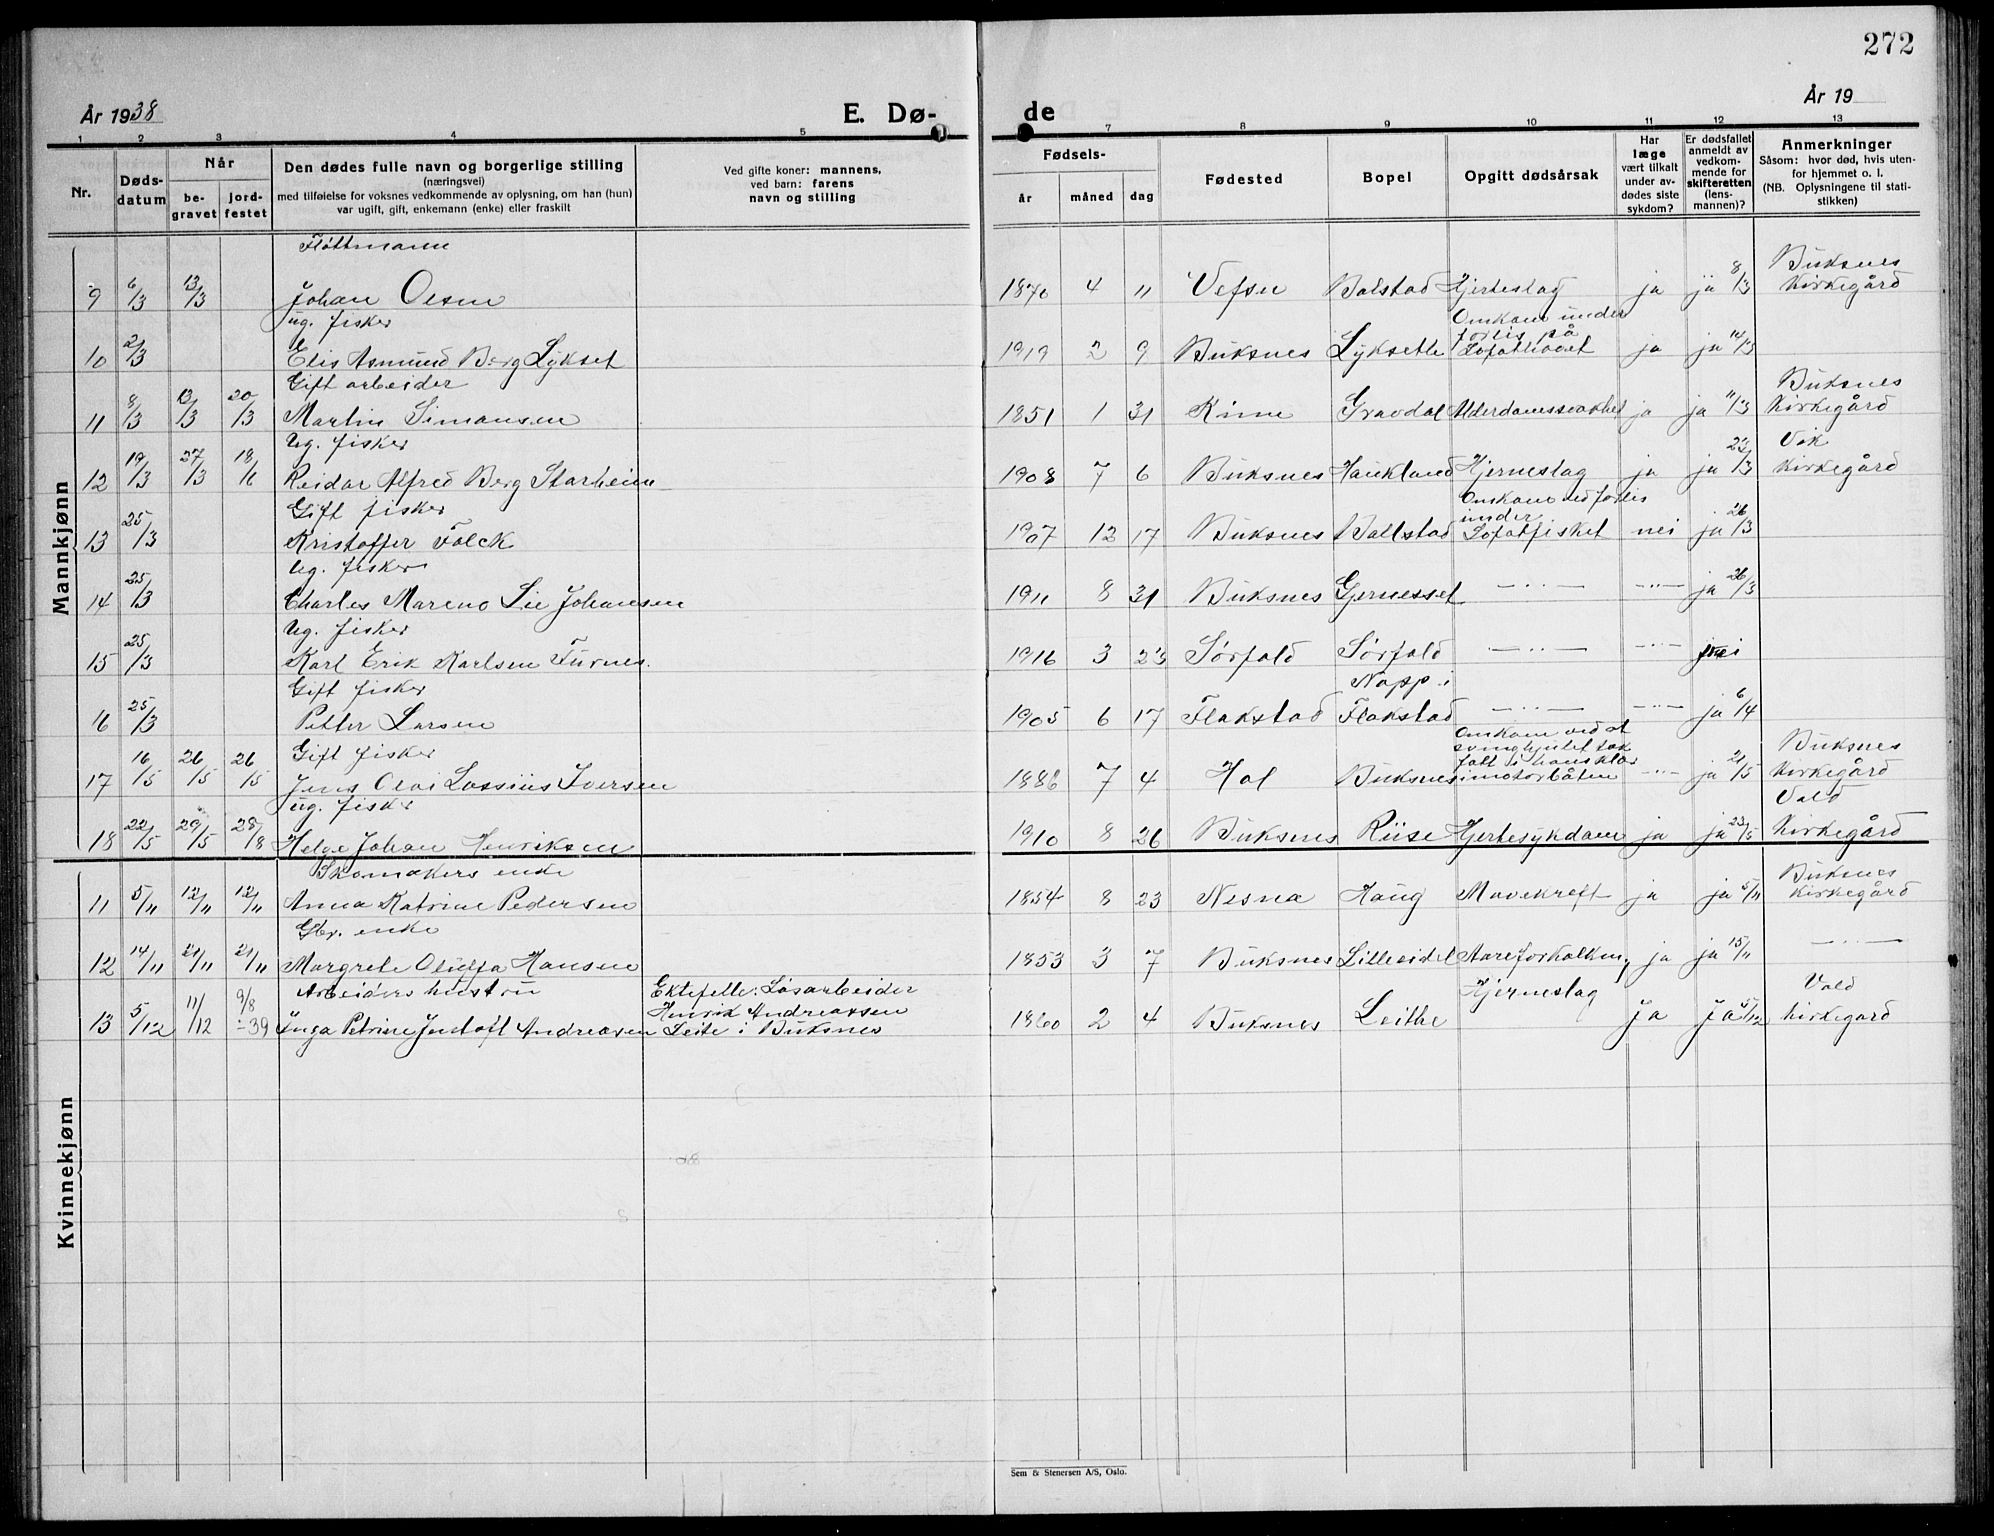 272
År 1938
E. Dø-
de
År 19
1 2 3 4 5 7 8 9 10 11 12 13
Nr.
Døds-
datum
Når
be-
gravet
jord-
festet
Den dødes fulle navn og borgerlige stilling
(næringsvei)
med tilføielse for voksnes vedkommende av oplysning, om han (hun)
var ugift, gift, enkemann (enke) eller fraskilt
Ved gifte koner: mannens,
ved barn: farens
navn og stilling
Fødsels-
år måned dag
Fødested
Bopel
Opgitt dødsårsak
Har
læge
vært tilkalt
under av-
dødes siste
sykdom?
Er dødsfallet
anmeldt av
vedkom-
mende for
skifteretten
(lens-
mannen)?
Anmerkninger
Såsom: hvor død, hvis uten-
for hjemmet o. l.
(NB. Oplysningene til stati-
stikken)
Mannkjønn
Fløttmann
Buksnes
9 6/3 13/3 Johan Olsen 1870 4 11 Vefsn Balstad Hjerteslag ja ja 8/3 Kirkegård
ug. fisker Omkom under
forlis på
10 2/3 Elis Asmund Berg Lykset 1919 2 9 Buksnes Lyksette Lofothavet ja ja 14/3
Gift arbeider Buksnes
11 8/3 13/3 20/3 Martin Simonsen 1851 1 31 Rinn Gravdal Alderdomssvakhet ja ja 11/3 Kirkegård
Ug. fisker Vik
12 19/3 27/3 18/6 Reidar Alfred Berg Starheim 1908 7 6 Buksnes Haukland Hjerneslag ja ja 23/3 Kirkegård
Gift fisker Omkom ved forlis
under
13 25/3 Kristoffer Falck 1907 12 17 Buksnes Ballstad Lofotfisket nei ja 26/3
Ug. fisker
14 25/3 Charles Mareno Lie Johansen 1911 8 31 Buksnes Gjernesset —„— —„— ja 26/3
Ug. fisker
15 25/3 Karl Erik Karlsen Furnes. 1916 3 23 Sørfold Sørfold —„— —„— nei
Gift fisker Napp i
16 25/3 Petter Larsen 1905 6 17 Flakstad Flakstad —„— —„— ja 6/4
Gift fisker Omkom ved at
svinghjulet tok
fatt i hans klær Buksnes
17 16/5 26/5 26/5 Jens Olai Lossius Iversen 1886 7 4 Hol Buksnes i motorbåten —„— ja 21/5 Kirkegård
ug. fisker Vold
18 22/5 29/5 28/8 Helge Johan Henriksen 1910 8 26 Buksnes Riise Hjertesykdom ja ja 23/5 Kirkegård
Kvinnekjønn
Skomakers enke Buksnes
11 5/11 12/11 12/11 Anna Katrine Pedersen 1854 8 23 Nesna Haug Mavekreft ja ja 5/11 Kirkegård
Gbr. enke
12 14/11 21/11 21/11 Margrete Olufa Hansen 1853 3 7 Buksnes Lilleeidet Aareforkalkning ja ja 15/11 —„—
Arbeiders hustru Ektefelle: Løsarbeider Hjerneslag Vold
Henrik Andreassen
13 5/12 11/12 9/8 -39 Inga Petrine Jentoft Andreasen Leite i Buksnes 1860 2 4 Buksnes Leithe Ja Ja 5/12 kirkegård
Sem & Stenersen A/S, Oslo.